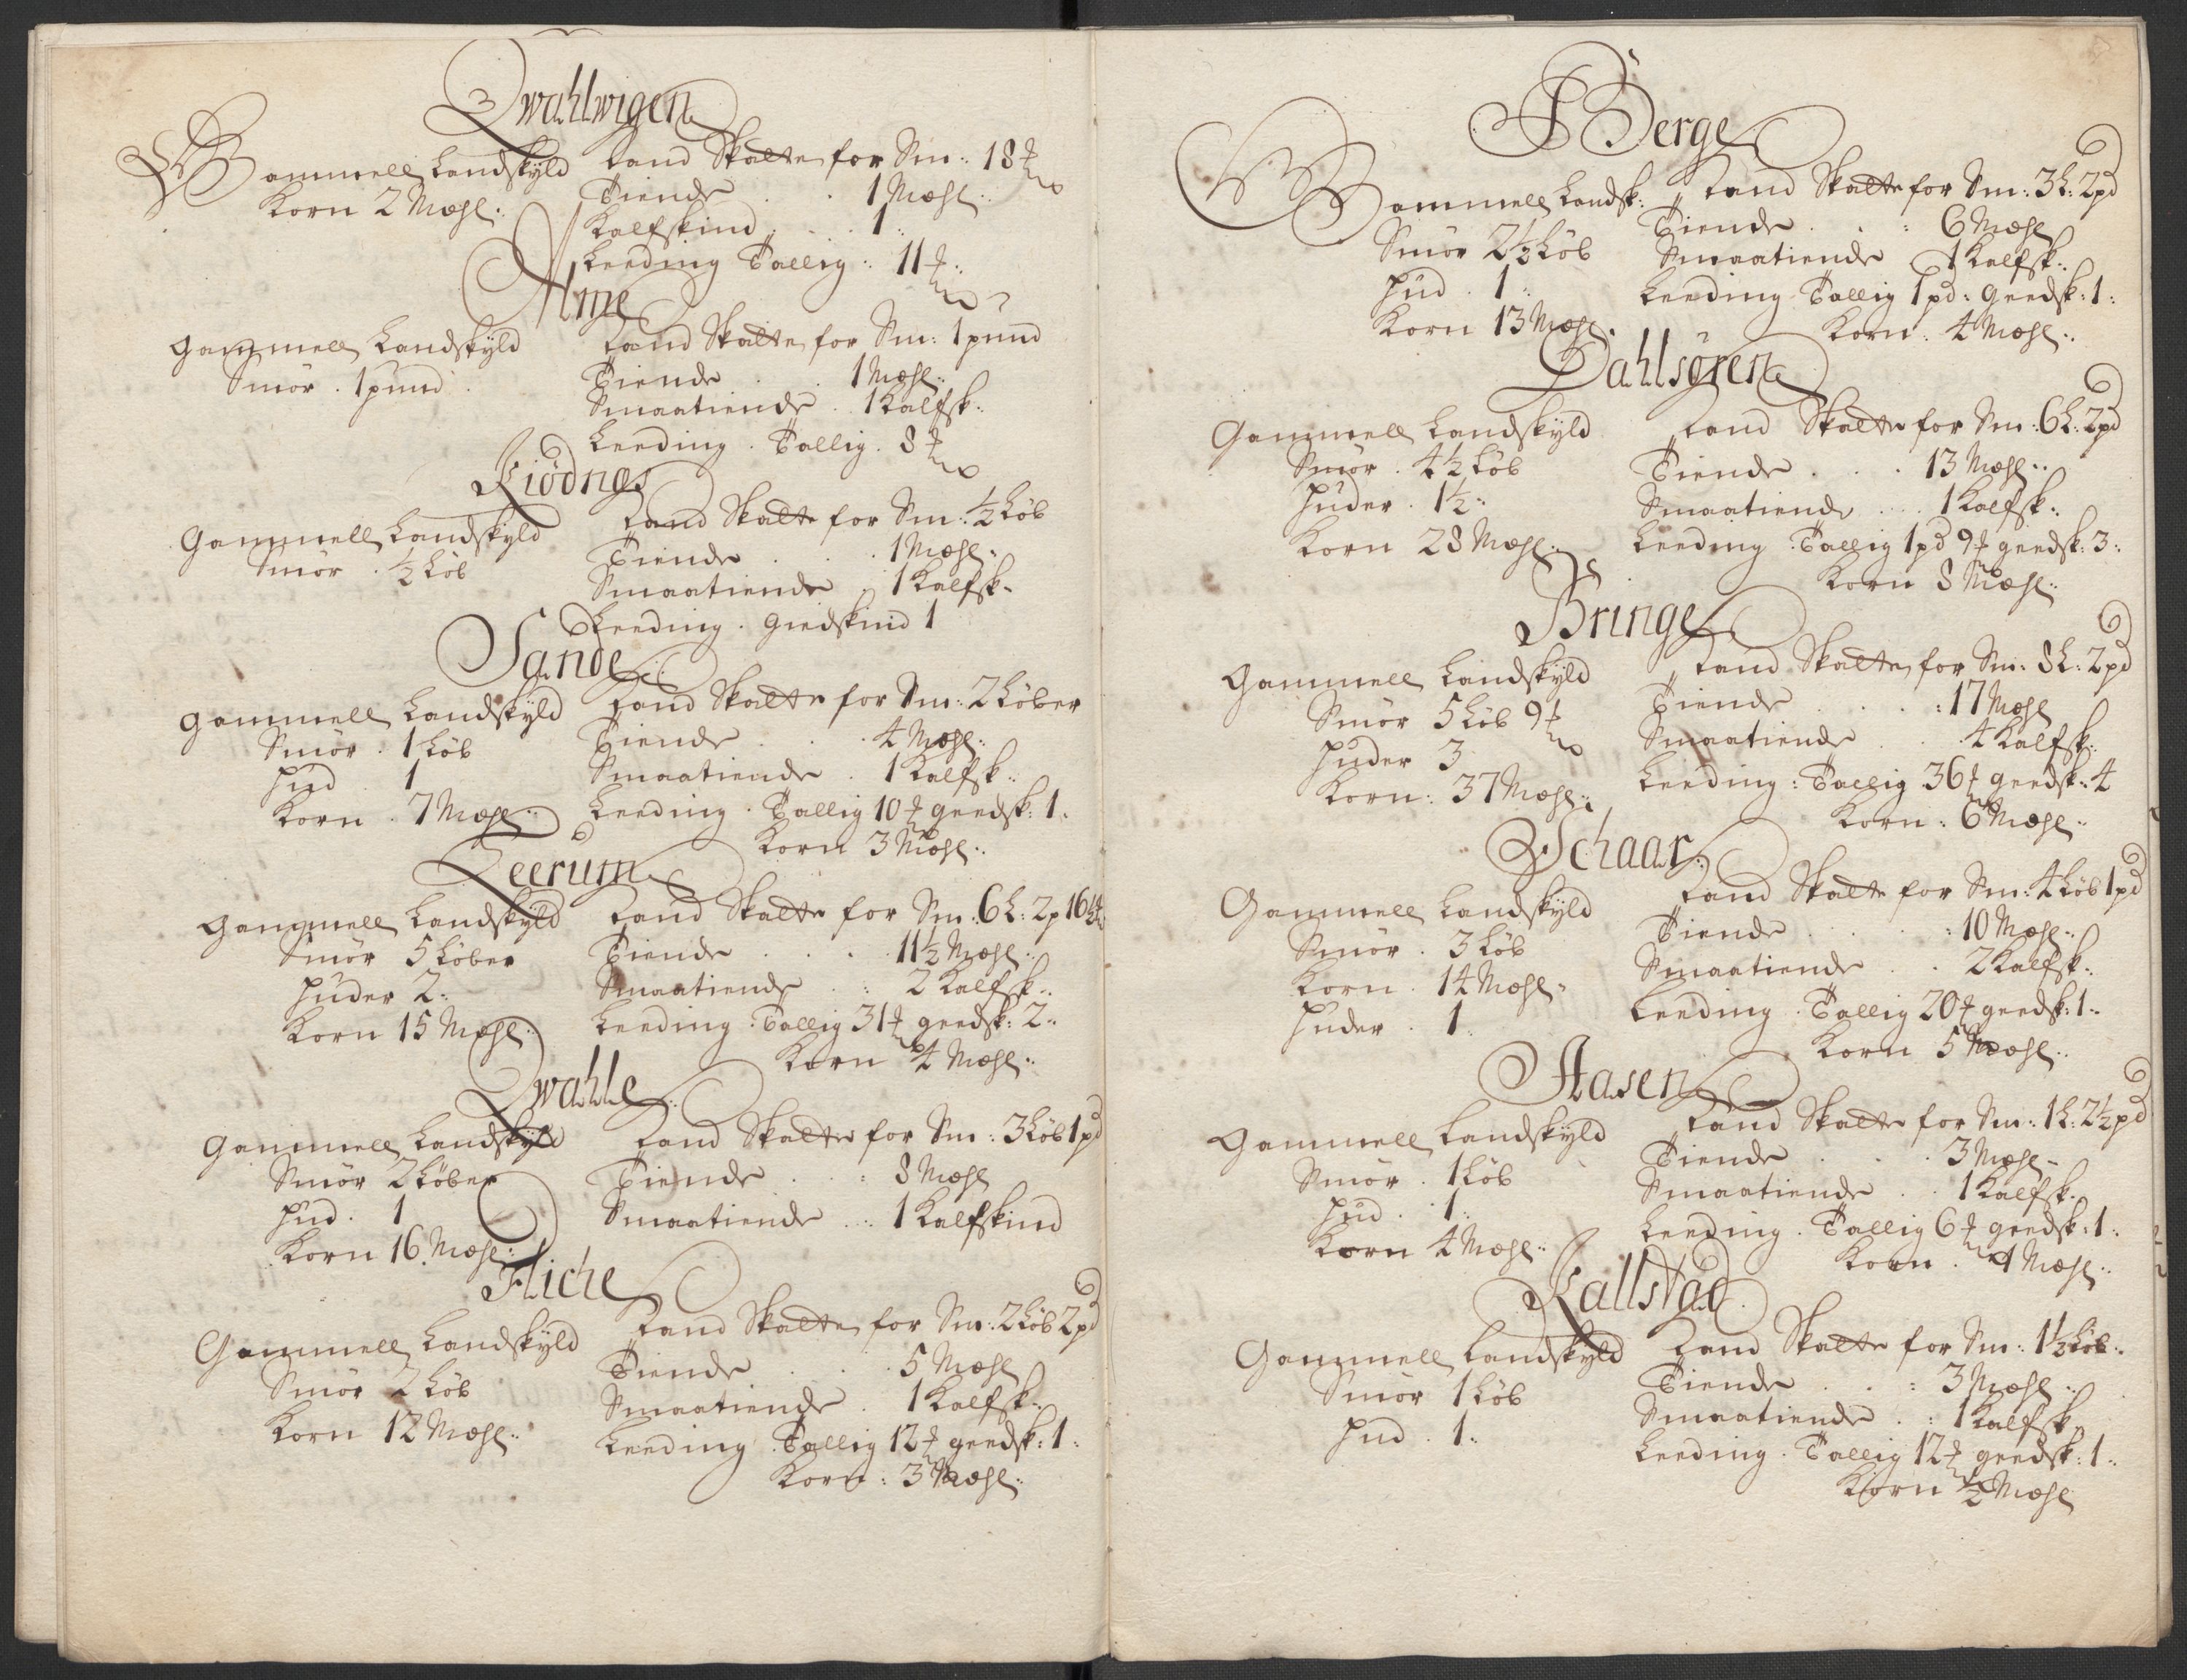 Qwahlwigen
Gammell Landskyld
Korn 2 Mæhl:
Land Skatter for Sm: 18 ℔
Tiende . . 1 Mæhl:
Kalfskind . . . 1:
Leeding Tallig: 11 ℔:
Ame
Gammell Landskyld
Smör . 1 pund .
Land Skatter for Sm: 1 pund
Tiende . . 1 Mæhl:
Smaatiende . 1 Kalfsk:
Leeding . Tallig . 8 ℔
Kiödnes
Gammell Landskyld
Smör . ½ Löb
Land Skatte for Sm: ½ Löb
Tiende . . 1 Mæhl:
Smaatiende . 1 Kalfsk-
Leeding . Giedskind 1
Sande
Gammell Landskyld
Smör . 1 Löb
Hud . 1
Korn . 7 Mæhl:
Land Skatte for Sm: 2 Löber
Tiende . . . 4 Mæhl:
Smaatiende . 1 Kalfsk:
Leeding . Tallig 10 ℔ geedsk: 1.
Korn 3 Mæhl:
Leerum
Gammell Landskyld
Smör 5 Löber
Huder 2:
Korn 15 Mæhl:
Land Skatte for Sm: 6 L: 2 p 16 ℔
Tiende . . . 11½ Mæhl:
Smaatiende . : 2 Kalfsk:
Leeding : Tallig 31 ℔ geedsk: 2:
Korn 4 Mæhl:
Qwahle
Gammell Landskyld
Smör 2 Löber
Hud . 1
Korn 16 Mæhl:
Land Skatte for Sm: 3 Löb 1 pd
Tiende . . : 8 Mæhl
Smaatiende .: 1 Kalfskind
Fliche
Gammell Landskyld
Smör 2 Löb
Korn 12 Mæhl:
Land Skatte for Sm: 2 Löb 2 pd
Tiende . . . 5 Mæhl
Smaatiende . 1 Kalfsk:
Leeding . Tallig 12 ℔ geedsk: 1:
Korn : 3 Mæhl:
Berge
Gammell Landsk:
Smör 2½ Löb
Hud . 1:
Korn 13 Mæhl.
Land Skatte for Sm: 3 L: 2 pd
Tiende . . : 6 Mæhl
Smaatiende 1 Kalfsk:
Leeding Tallig 1 pd: geedsk: 1:
Korn: 4 Mæhl:
Dahlsören
Gammell Landskyld
Smör . 4½ Löb
Huder . 1½:
Korn 28 Mæhl:
Land Skatte for Sm: 6 L: 2 pd
Tiende . . . 13 Mæhl:
Smaatiende ... 1 Kalfsk:
Leeding : Tallig 1 pd 9 ℔ geedsk: 3:
Korn 8 Mæhl:
Bringe
Gammell Landskyld
Smör 5 Löb 9 ℔
Huder 3
Korn: 37 Mæhl:
Land Skatte for Sm: 8 L: 2 pd
Tiende . . . : 17 Mæhl
Smaatiende . . 4 Kalfsk:
Leeding : Tallig 36 ℔ geedsk: 4
Korn : 6 Mæhl:
Schaar
Gammell Landskyld
Smör . 3 Löb
Korn . 14 Mæhl:
Huder . 1:
Land Skatte for Sm: 4 Löb 1 pd
Tiende . . . : 10 Mæhl:
Smaatiende . . 2 Kalfsk:
Leeding . Tallig 20 ℔ geedsk: 1:
Korn 5 Mæhl:
Aasen
Gammell Landskyld
Smör . 1 Löb
Hud . 1:
Korn 4 Mæhl:
Land Skatte for Sm: 1 L: 2½ pd
Tiende . . . 3 Mæhl-
Smaatiende . . 1 Kalfsk:
Leeding . Tallig 6 ℔ geedsk: 1:
Korn . 1 Mæhl:
Kallstad
Gammell Landskyld
Smör 1 Löb
Hud . 1:
Land Skatte for Sm: 1½ Löb:
Tiende . . : 3 Mæhl:
Smaatiende . : 1 Kalfsk
Leeding . Tallig 12 ℔ geedsk: 1:
Korn ½ Mæhl